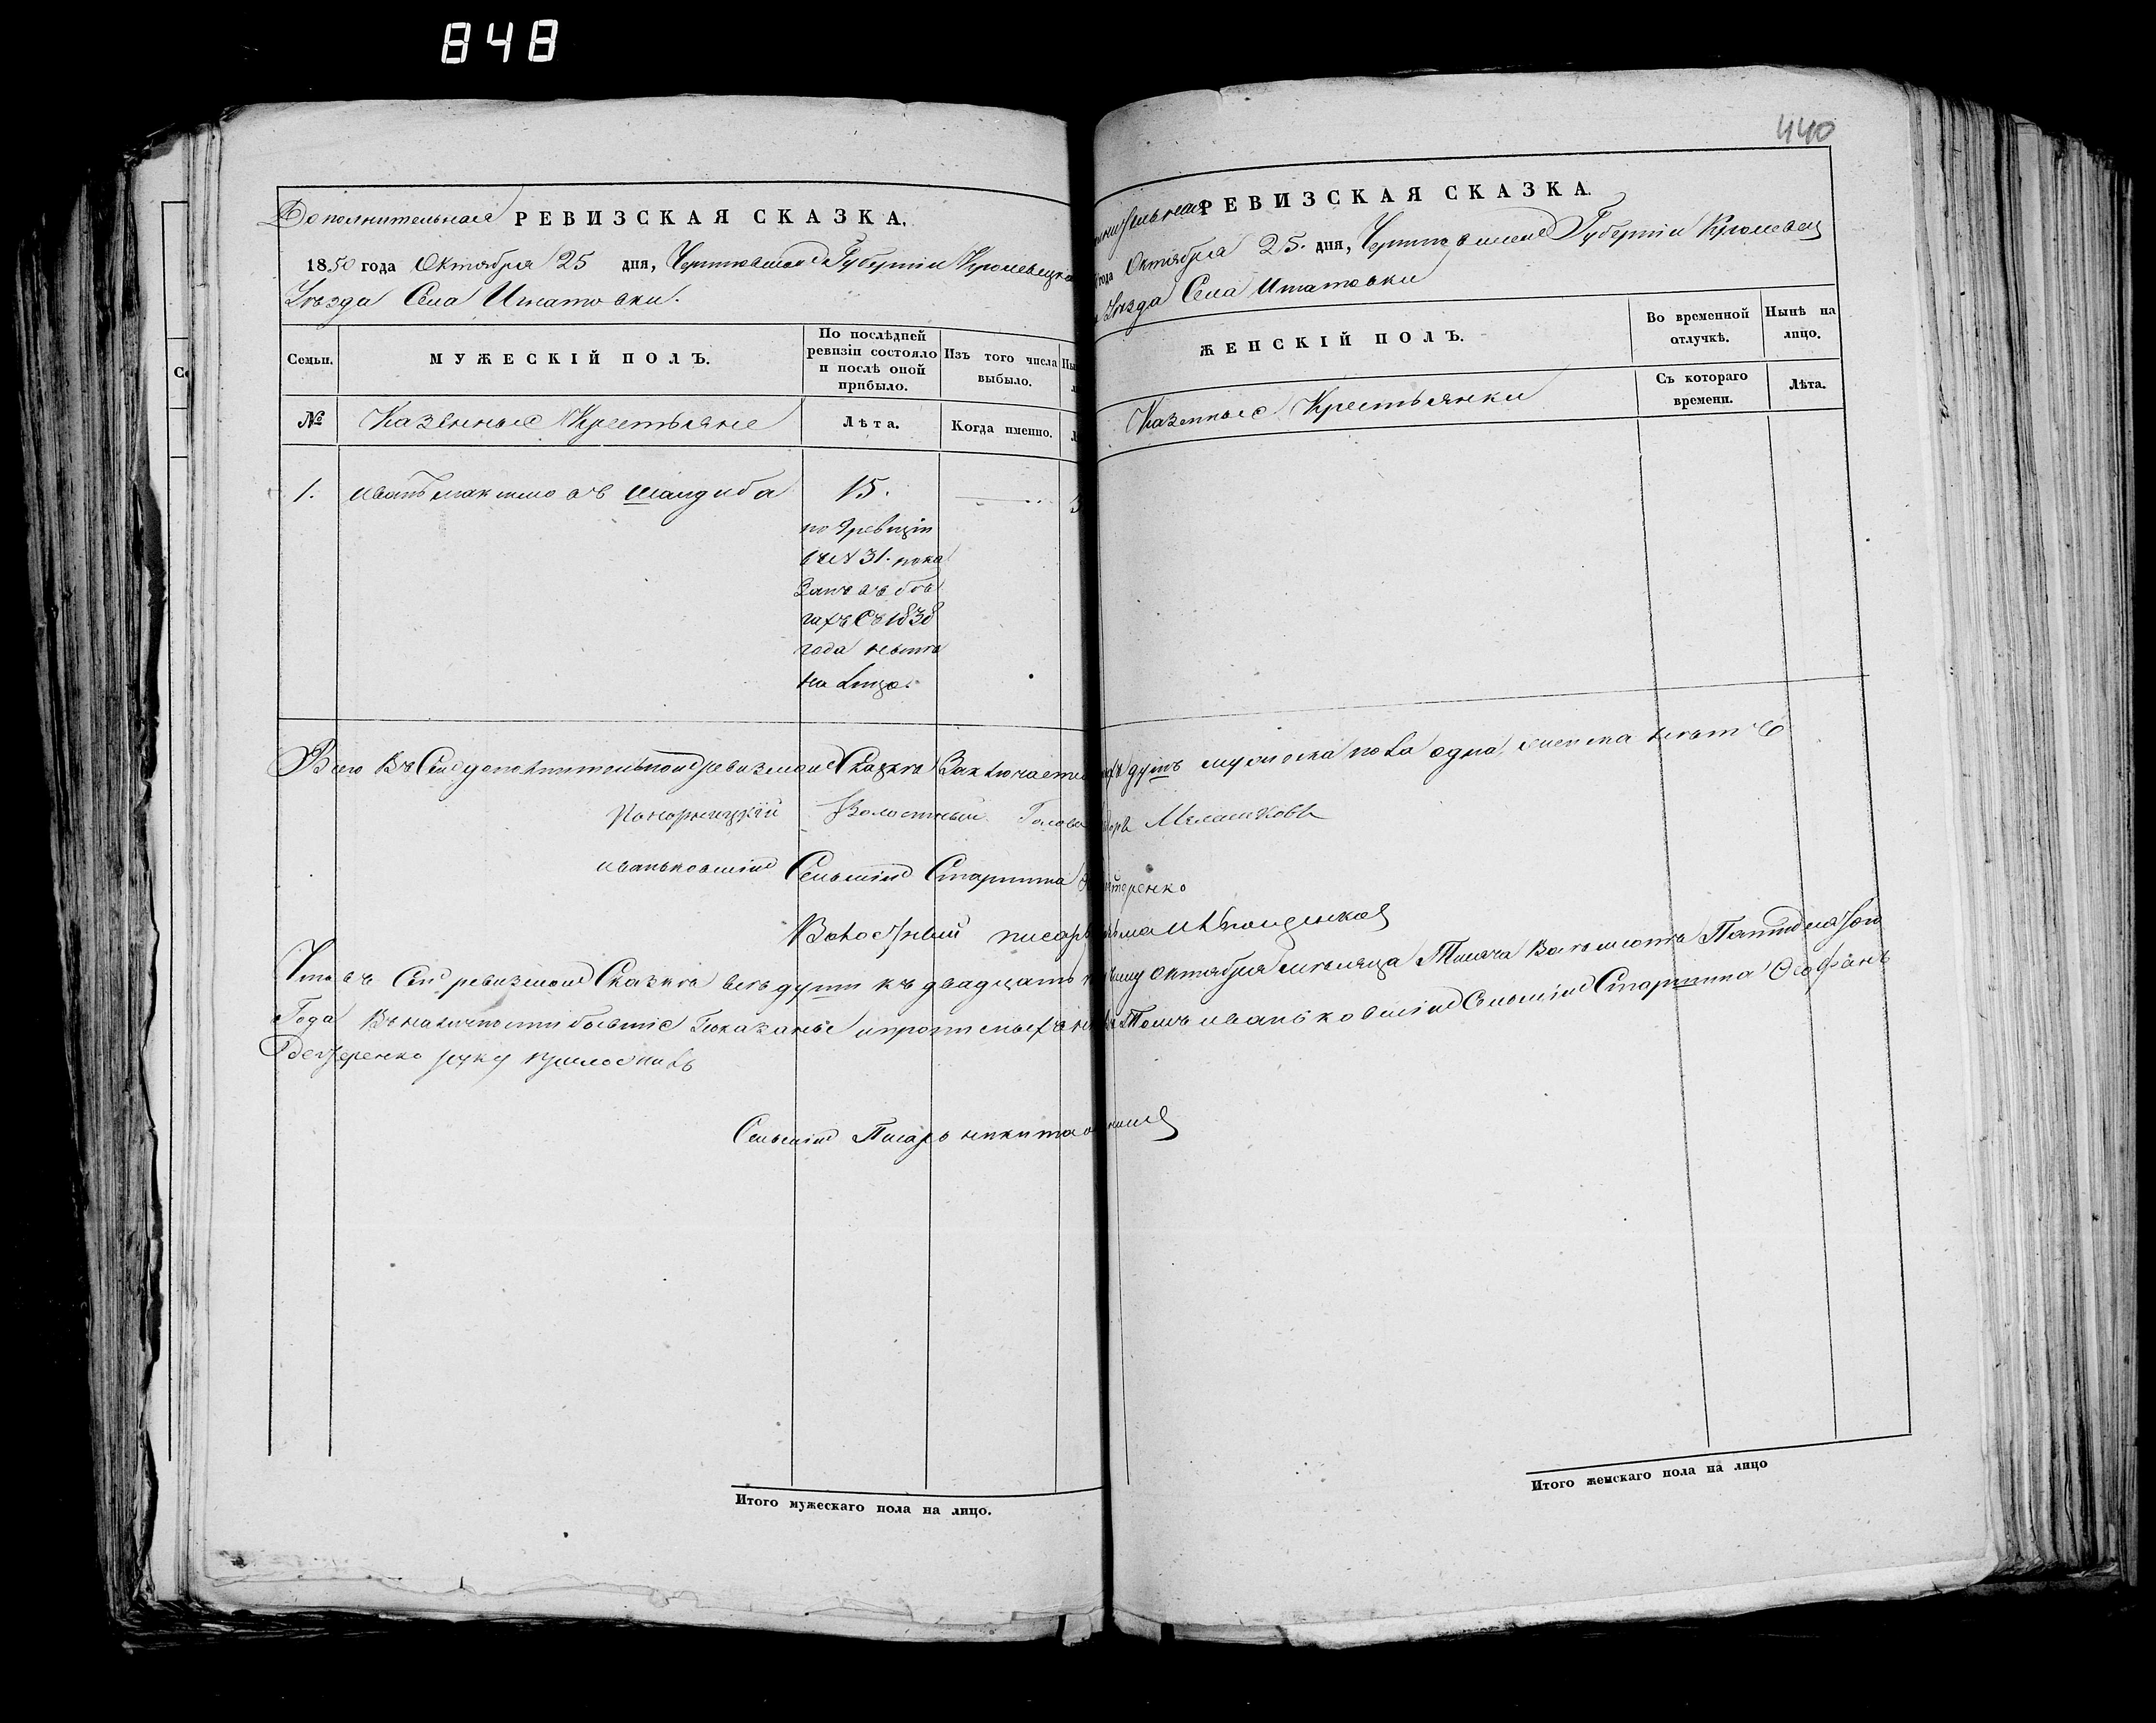 848
440
Дополнительная РЕВИЗСКАЯ СКАЗКА.
1850 года Октября 25 дня, Черниговской Губернии Кролевецка
Уѣзда Села Игнатовки.
Семьи.
МУЖЕСКІЙ ПОЛЪ.
По послѣдней
ревизіи состояло
и послѣ оной
прибыло.
Изъ того числа
выбыло.
№
Казенные Крестьяне
Лѣта.
Когда именно.
1.
иванъ максимовъ шандыба
15.
по ревизіи
31. пока
занъ въ бѣ
гахъ Съ 1838
года
на лицо.
РЕВИЗСКАЯ СКАЗКА.
года Октября 25. дня, Черниговской Губерніи Кролевец
Уѣзда Села Игнатовки
ЖЕНСКІЙ ПОЛЪ.
Во временной
отлучкѣ.
Нынѣ на
лицо.
Казенные Крестьянки
Съ котораго
времени.
Лѣта.
Всего Въ Сей дополнительной ревизской Сказкѣ Заключается душъ мужеска пола одна, женска нѣтъ
Понорницкій Волостный Голова Мелашковъ
иваньковскій Сельскій Старшина
Волостный писарь
Что въ Сей ревизской Сказкѣ всѣ души къ двадцать октября мѣсяца Тысяча Восемсотъ Пятидесятого
Года въ наличности бывшіе Показаны и прописныхъ Томъ иваньковскій Сельскій Старшина Феофанъ
руку приложилъ
Сельскій Писарь никита
Итого мужескаго пола на лицо.
Итого женскаго пола на лицо